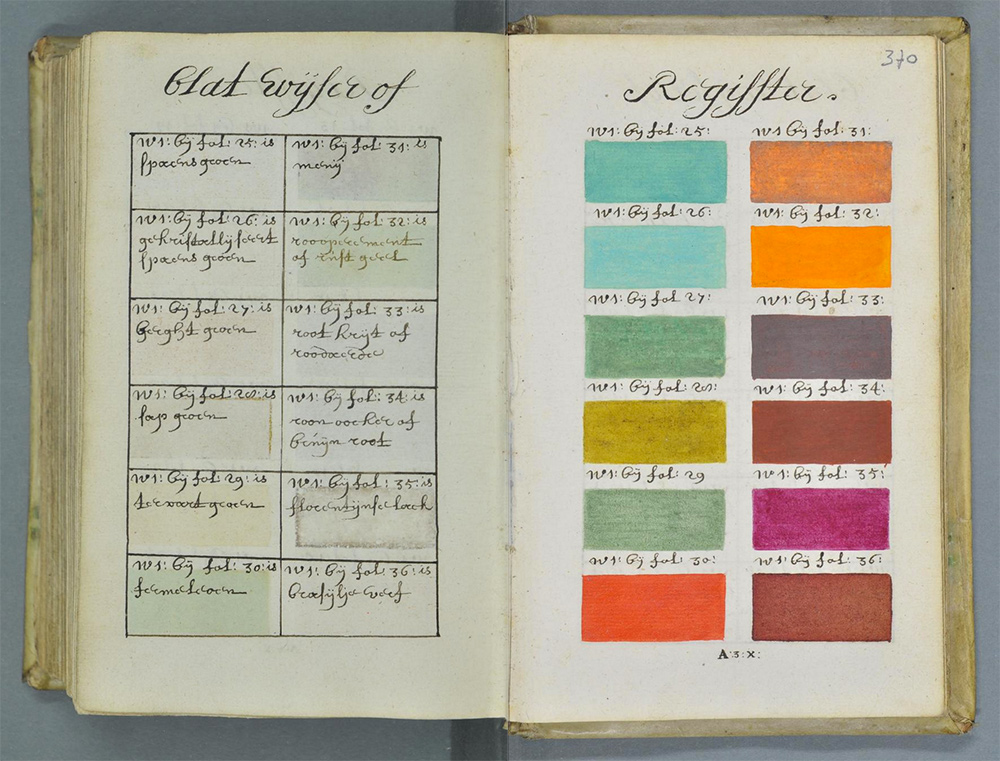 Blat wijser of
w1: bij fol: 25: is
spaens groen
w1: bij fol: 31: is
menij
w1: bij fol: 26: is
gekristallijseert
spaens groen
w1: bij fol: 32: is
roooperement
of rust geel
w1: bij fol: 27: is
berght groen
w1: bij fol: 33: is
root krijt of
roodaerde
w1: bij fol: 28: is
sap groen
w1: bij fol: 34: is
roon oocker of
bruijn root
w1: bij fol: 29: is
terwart groen
w1: bij fol: 35: is
florentijnse lack
w1: bij fol: 30: is
fermeleoen
w1: bij fol: 36: is
brasijlje verf
370
Regisster.
w1: bij fol: 25:
w1: bij fol: 31:
w1: bij fol: 26:
w1: bij fol: 32:
w1: bij fol: 27:
w1: bij fol: 33:
w1: bij fol: 28:
w1: bij fol: 34:
w1: bij fol: 29
w1: bij fol: 35:
w1: bij fol: 30:
w1: bij fol: 36:
A:3:X: